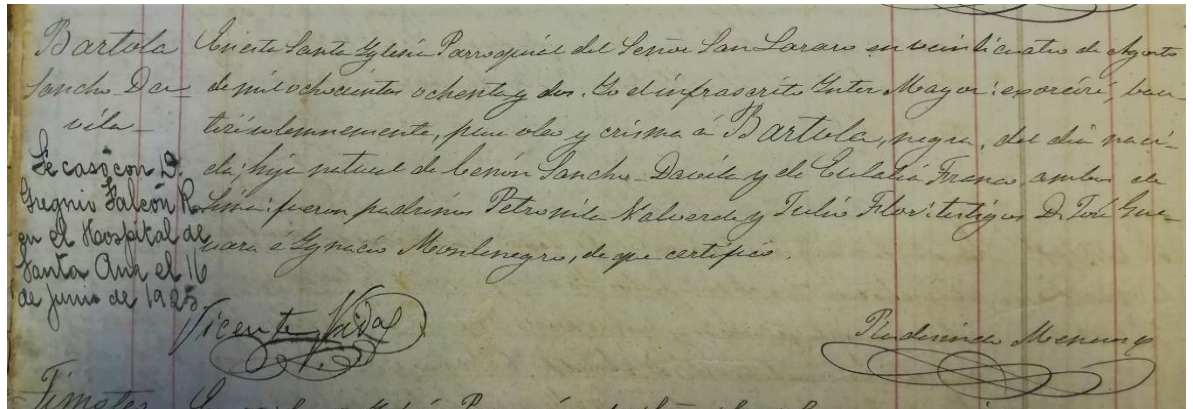 Bartola
Sancho Da-
vila
Se casó con D.
Gregorio Falcón R.
en el Hospital de
Santa Ana el 16
de junio de 1925
En esta Santa Yglesia Parroquial del Señor San Lazaro en veinticuatro de Agosto
de mil ochocientos ochenta y dos. Yo el infrascrito Ynter Mayor: exorcisé, bau-
tisé solemnemente, puse oleo y crisma á Bartola, negra, del dia naci-
da; hija natural de Cenón Sancho-Davila y de Eulalia Franco, ambos de
Lima: fueron padrinos Petronila Valverde y Julio Flor: testigos D. José Gue-
vara é Ygnacio Montenegro, de que certifico.
Vicente Vidal
Rudecindo
Timotea